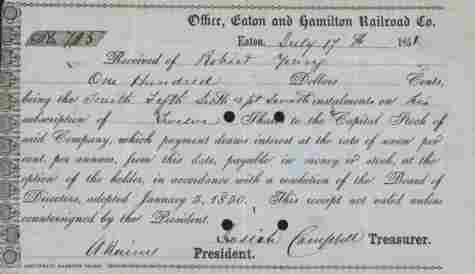 Office, Eaton and Hamilton Railroad Co.
No. 703 Eaton, July 17th 1851
Received of Robert
One Hundred Dollars Cents,
being the Fourth Fifth Sixth & pt Seventh instalments on his
subscription of Twelve Shares to the Capital Stock of
said Company, which payment draws interest at the rate of seven per
cent. per annum, from this date, payable in money or stock, at the
option of the holder, in accordance with a resolution of the Board of
Directors, adopted January 3, 1850. This receipt not valid unless
countersigned by the President.
Campbell Treasurer.
President.